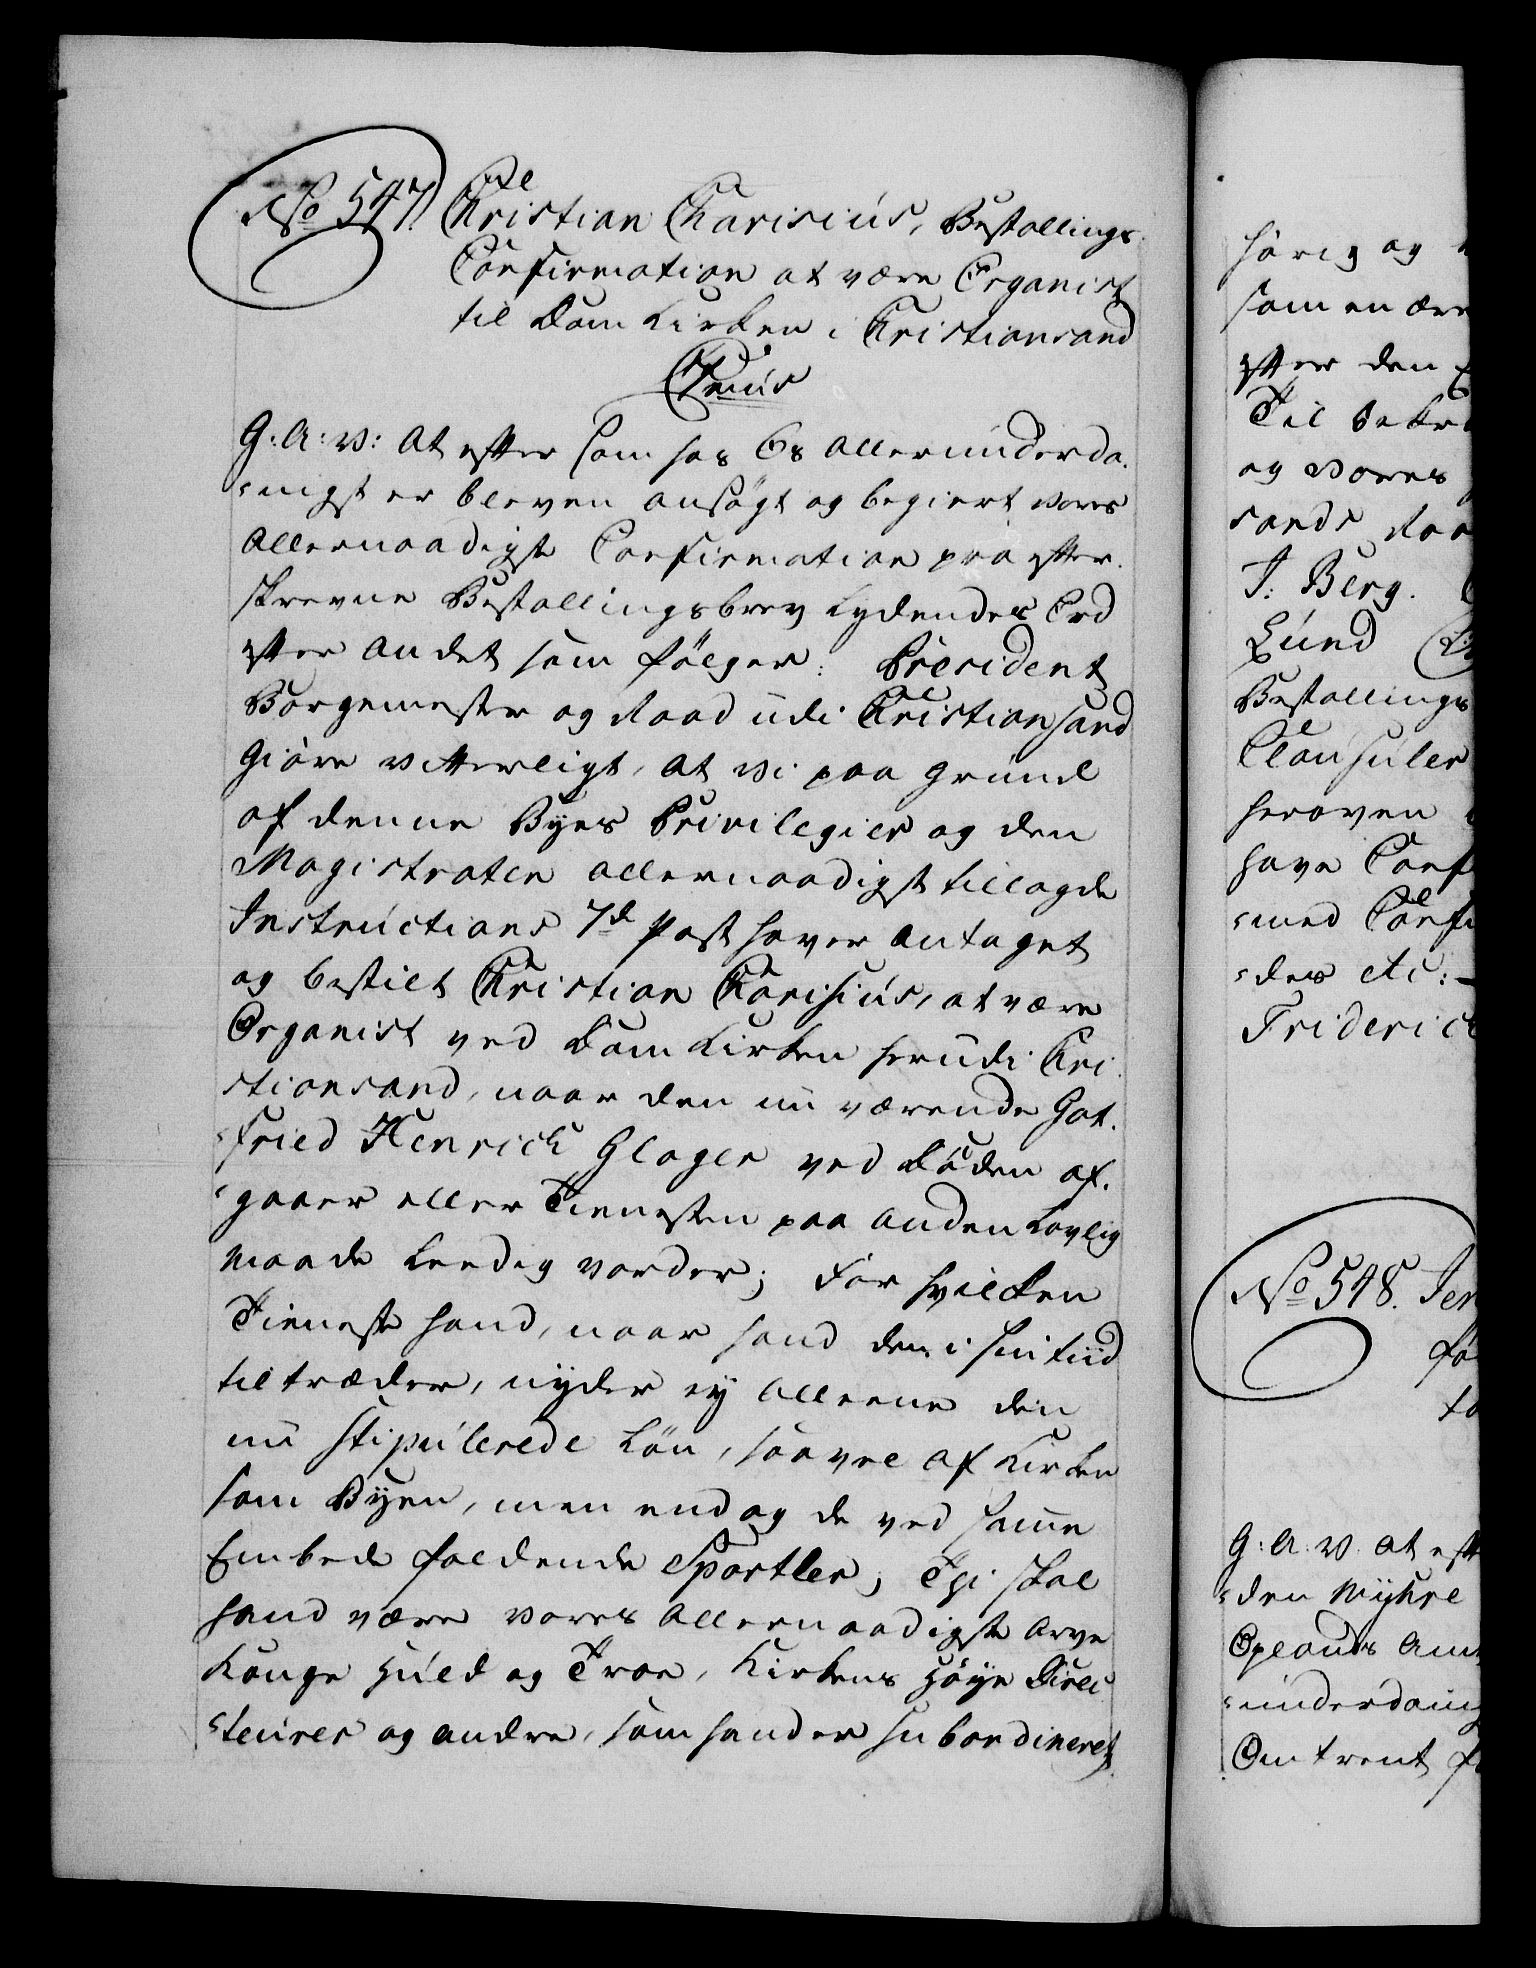 No 547. Christian Charisius, Bestallings
Confirmation at være Organist
til Dom Kirken i Christiansand
G: A: V: At efter som hos Os allerunderda-
nigst er bleven ansögt og begiert vores
Allernaadigste Confirmation paa efter-
skrevne Bestallingsbrev Lydendes Ord
efter andet som fölger: Præsident
Borgemester og Raad udi Christiansand
Giöre vitterligt, at vi paa Grund
af denne Byes Privilegier og den
Magistraten allernaadigst tillagde
Instructions 7de Post haver antaget
og bestilt Christian Charisius, at være
Organist ved Dom Kirken herudi Chri-
stiansand, naar den nu værende Got-
fried Henrich Gloger ved Döden af-
gaaer eller Tienesten paa anden Lovlig
Maade Leedig vorder; For hvilken
Tieneste hand, naar hand den i sin tiid
tiltræder, nyder ey alleene den
nu stipulerede Lön, saavel af Kirken
som Byen, men endog de ved samme
Embede faldende Sportler; Thi skal
hand være vores Allernaadigste Arve
Konge Huld og Troe, Kirkens Höye Direc-
teurer og andre, som hand er subordineret
hörig og
som en ære
efter den
Til Bekr
og vores
sands Raa
J: Berg.
Lund
Bestallings
Clausuler
heroven
have Conf
med Confi
des etc: -
Friderich
No 548. Jen
fo
to
G: A: V. At eft
den Myhre
Oplands Amt
underdanig
Omtrent f